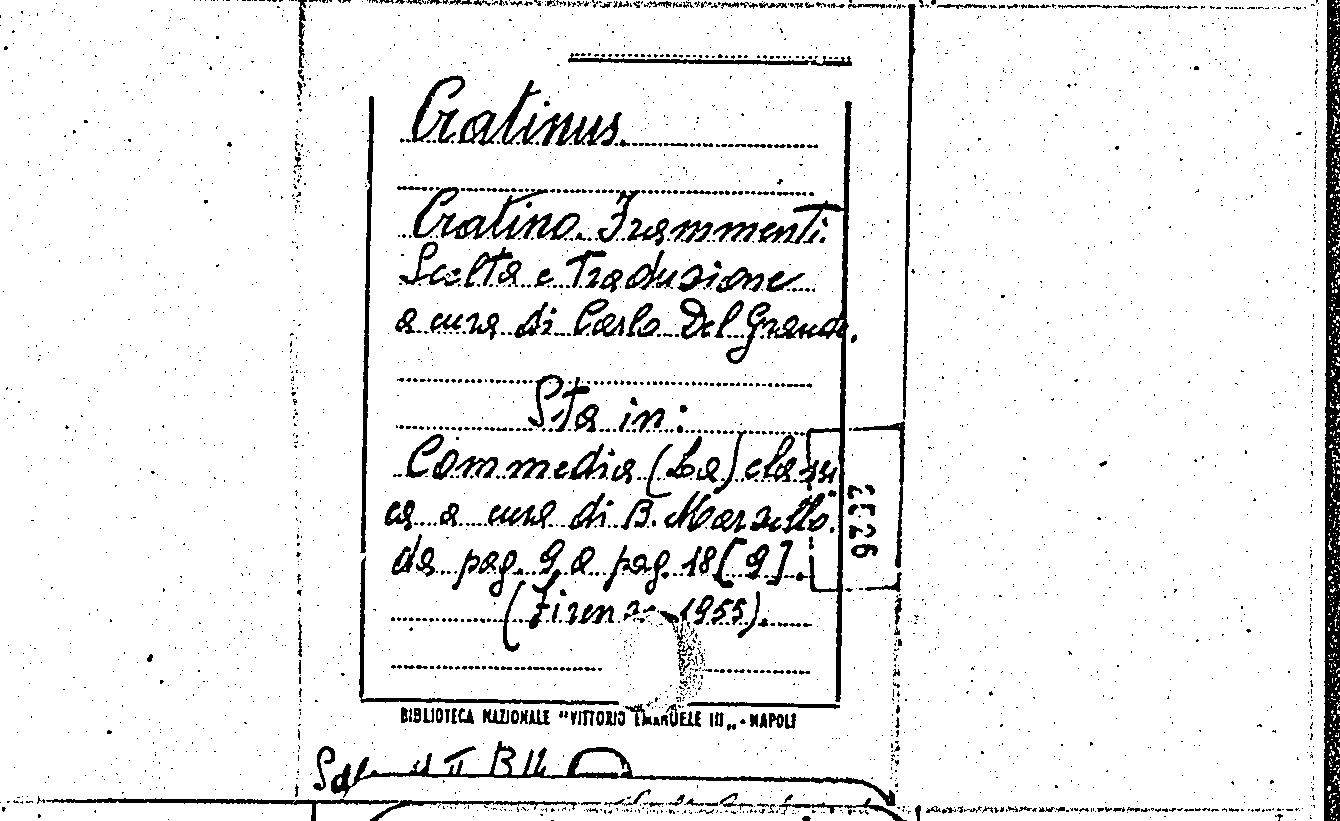 Cratinus.
Cratino. Frammenti.
Scelta e Traduzione
a cura di Carlo Del Grande.
Sta in:
Commedia (La) classi
ca a cura di B. Marzullo.
da pag. 9 a pag. 18 [9].
(Firenze 1955).
BIBLIOTECA NAZIONALE "VITTORIO EMANUELE III„ - NAPOLI
II B 12